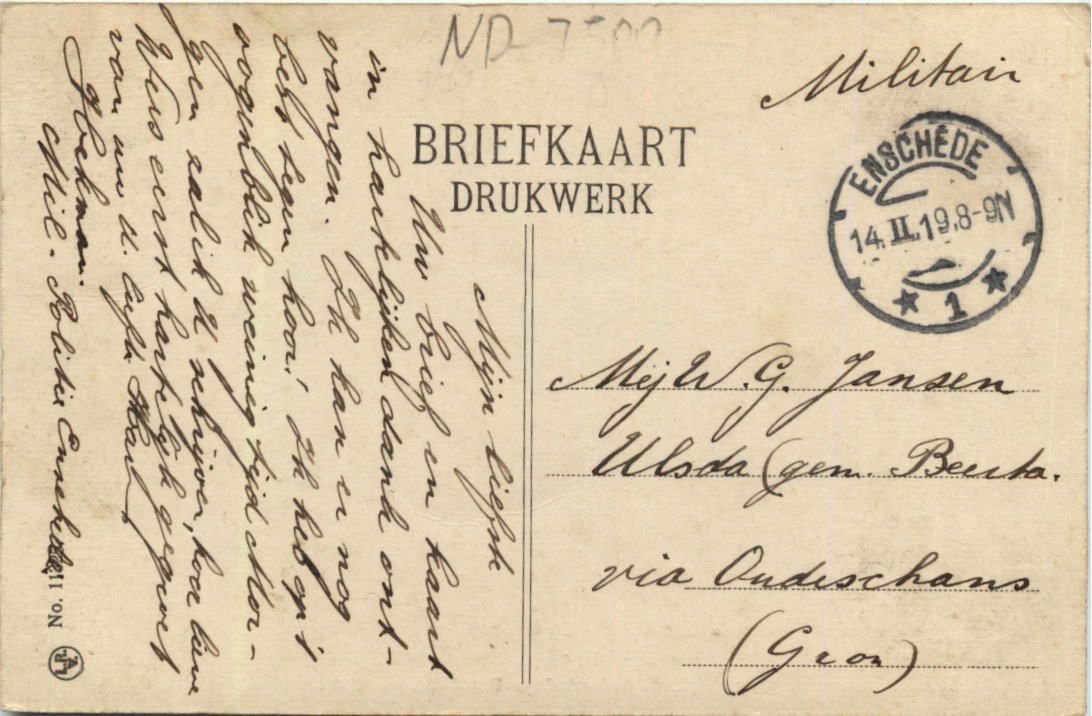 ND-7500
Militair
BRIEFKAART
DRUKWERK
ENSCHEDE
14.II.19.8-9N
1
Mej W. G. Jansen
Ulsda (gem. Beerta.
via Oudeschans
(Gron)
Mijn liefste
Uw brief en kaart
in hartelijken dank ont-
vangen. Ik kan er nog
best tegen hoor! Ik heb op 't
oogenblik weinig tijd Mor-
gen zal ik U schrijven, hoe lieve
Wees eerst hartelijk gegroet
van uw u. liefh.
Mil. Politie Enschede
No. 11